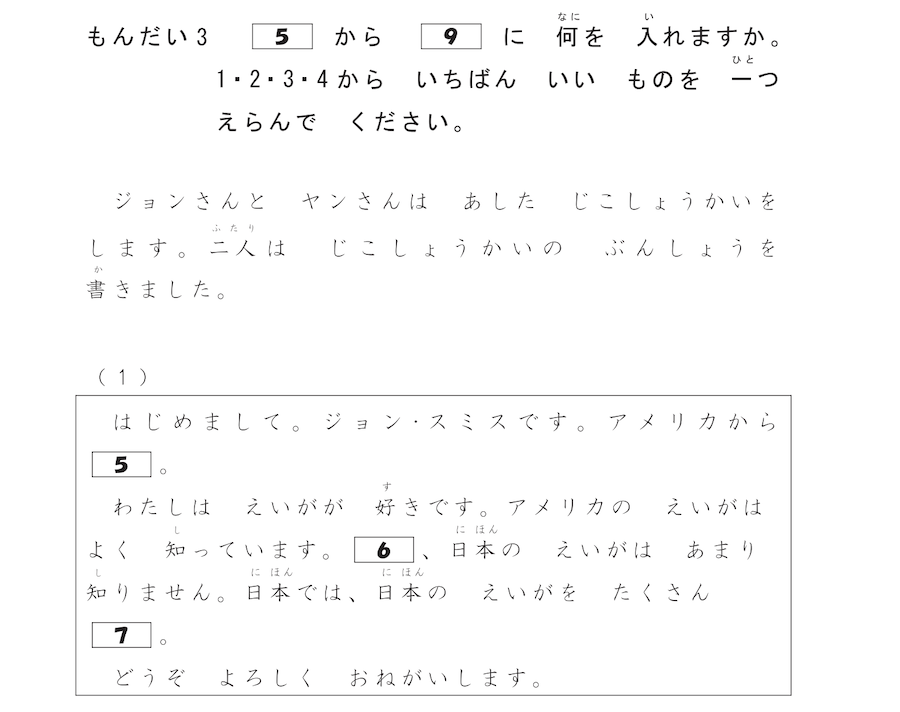 もんだい3 5 から 9 に 何を 入れますか。
1・2・3・4から いちばん いい ものを 一つ
えらんで ください。
ジョンさんと ヤンさんは あした じこしょうかいを
します。二人は じこしょうかいの ぶんしょうを
書きました。
(1)
はじめまして。ジョン・スミスです。アメリカから
5。
わたしは えいがが 好きです。アメリカの えいがは
よく 知っています。 6 、日本の えいがは あまり
知りません。日本では、日本の えいがを たくさん
7。
どうぞ よろしく おねがいします。